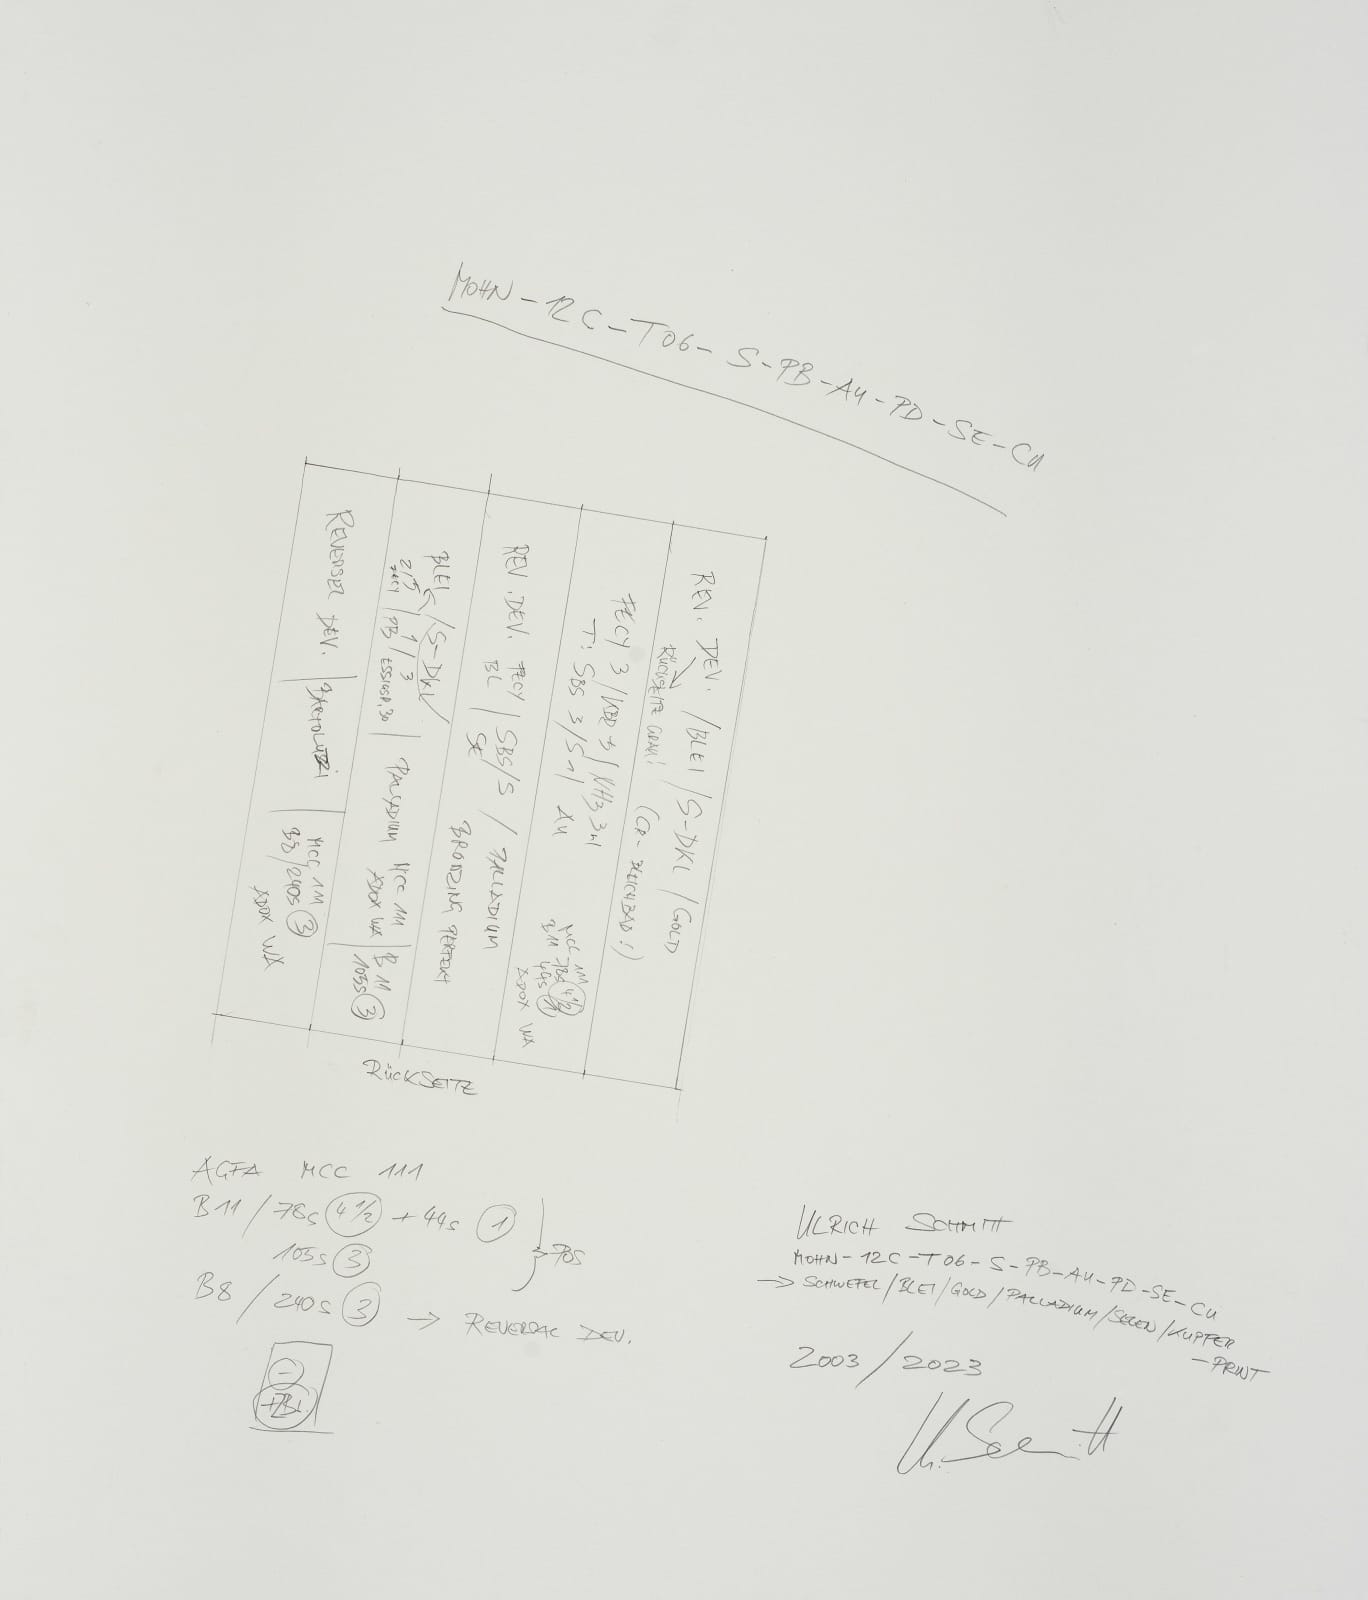 MOHN-12C-T06-S-PB-AU-PD-SE-CU
REV. DEV. /BLEI /S-DKL /GOLD
RÜCKSEITE GRAU!
(CR-BLEICHBAD!)
FECY 3 /KBR 3 / NH3 3ml
T: SBS 3/S 1 / AU
MCC 111
B11 78s 4½
44s 1
ADOX WA
REV. DEV. FECY / SBS/S / PALLADIUM
BL SE
BRONZING PERFEKT
BLEI /S-DKL
1/3
FECY / PB / ESSIGSR. 30 / PALLADIUM MCC 111 / B11
ADOX WA 105s 3
REVERSEL DEV. / BARTOLOZZI / MCC 111
B8/240s 3
ADOX WA
RÜCKSEITE
AGFA MCC 111
B11 /78s 4½ + 44s 1
105s 3 POS
B8 / 240s 3 → REVERSAL DEV.
ULRICH SCHMITT
MOHN-12C-T06-S-PB-AU-PD-SE-CU
→ SCHWEFEL/BLEI/GOLD/PALLADIUM/SELEN/KUPFER
-PRINT
2003/2023
U. Schmitt